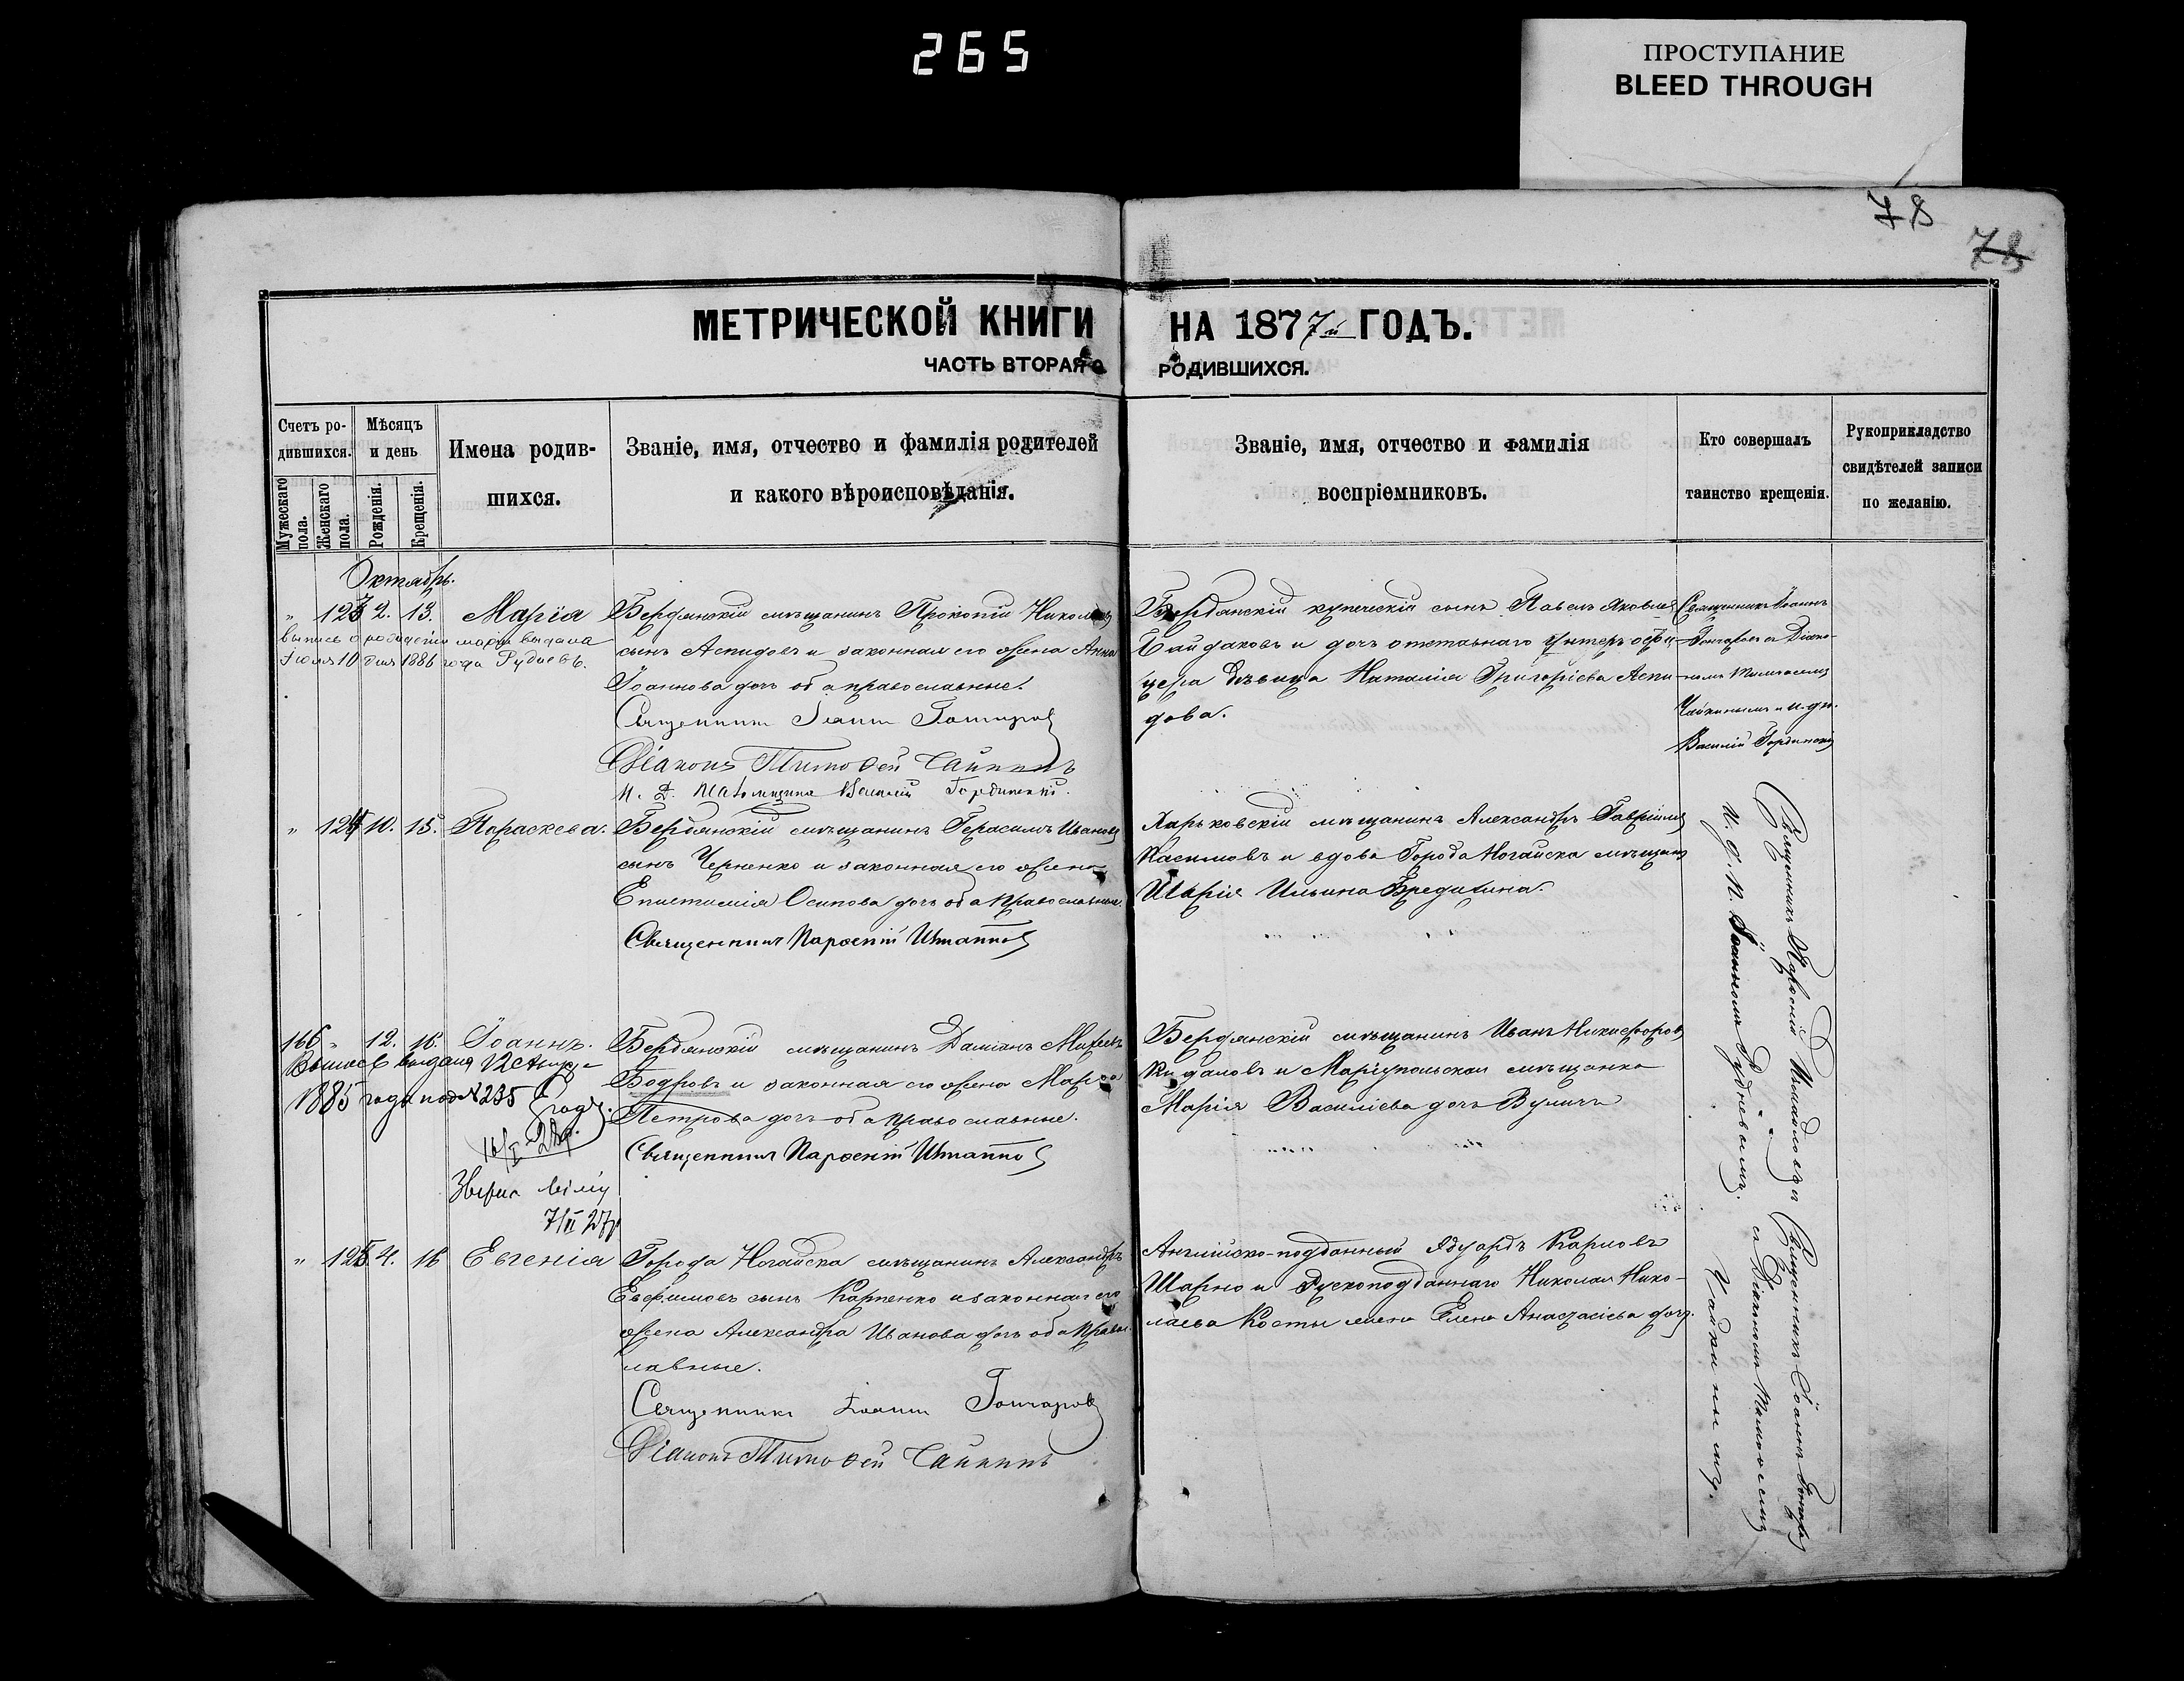 265
ПРОСТУПАНИЕ
BLEED THROUGH
78
78
МЕТРИЧЕСКОЙ КНИГИ НА 1877й ГОДЪ.
ЧАСТЬ ВТОРАЯ О РОДИВШИХСЯ.
Счетъ ро-
дившихся.
Мужескаго пола.
Женскаго пола.
Мѣсяцъ
и день
Рожденія.
Крещенія.
Имена родив-
шихся.
Званіе, имя, отчество и фамилія родителей
и какого вѣроисповѣданія.
Званіе, имя, отчество и фамилія
воспріемниковъ.
Кто совершалъ
таинство крещенія.
Рукоприкладство
свидѣтелей записи
по желанію.
Октябрь.
" 123 2. 13. Марія
Выпись о рожденіи Маріи выдана
Іюля 10 дня 1886 года
Бердянскій мѣщанинъ Прокопій Николаевъ
сынъ Аспидовъ и законная его жена Анна
Іоаннова дочь оба православные.
Священникъ Іоаннъ Гончаровъ
Діаконъ Тимоѳей Чайкинъ
И. д. Псаломщика Василій
Бердянскій купеческій сынъ Павелъ Яковлевъ
Байдаковъ и дочь отставнаго унтеръ офи-
цера дѣвица Наталія Григоріева Аспи-
дова.
Священникъ Іоаннъ
Гончаровъ съ Діако-
номъ Тимоѳеемъ
Чайкинымъ и и. д. п.
Василій
" 124 10. 15. Параскева.
Бердянскій мѣщанинъ Герасимъ Ивановъ
сынъ Черненко и законная его жена
Епистимія Осипова дочь оба православные.
Священникъ Парѳеній
Харьковскій мѣщанинъ Александръ Гавріиловъ
Касимовъ и вдова Города Ногайска мѣщанка
Марія Ильина Бредихина.
Священникъ Парѳеній
и. д. п. Іоанномъ Рудневымъ.
166 " 12. 16. Іоаннъ.
1885 года под № 235
7/II 27р
Бердянскій мѣщанинъ Даміанъ Михеевъ
Бодровъ и законная его жена Марѳа
Петрова дочь оба православные.
Священникъ Парѳеній
Бердянскій мѣщанинъ Иванъ Никифоровъ
Кидаловъ и Маріупольская мѣщанка
Марія Василіева дочь Вуличъ
" 125 4. 16 Евгенія
Города Ногайска мѣщанинъ Александръ
Евфимовъ сынъ Карпенко и законная его
жена Александра Иванова дочь оба правос-
лавные.
Священникъ Іоаннъ Гончаровъ
Діаконъ Тимоѳей Чайкинъ
Англійско-подданный Эдуардъ Карловъ
Шарно и Рускоподданнаго Николая Нико-
лаева Косты жена Елена Анастасіева дочь.
Священникъ Іоаннъ Гончаровъ
съ Діакономъ Тимоѳеемъ
Чайкинымъ.